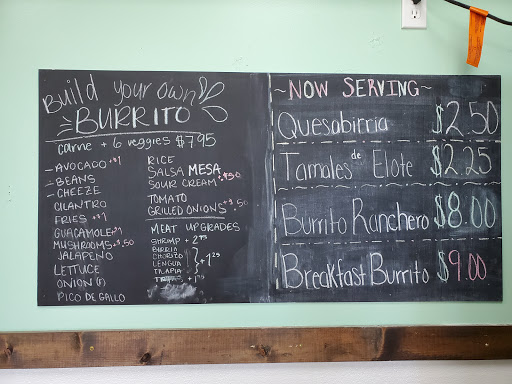 Build your own
BURRITO
carne + 6 veggies $7.95
- AVOCADO +$1
- BEANS
- CHEEZE
CILANTRO
FRIES +$1
GUACAMOLE +$1
MUSHROOMS +$.50
JALAPEÑO
LETTUCE
ONION (F)
PICO DE GALLO
RICE
SALSA MESA
SOUR CREAM +$.50
TOMATO
GRILLED ONIONS +$.50
MEAT UPGRADES
SHRIMP + 2.75
BIRRIA
CHORIZO
LENGUA
TILAPIA
+1.25
~NOW SERVING~
Quesabirria $2.50
Tamales de Elote $2.25
Burrito Ranchero $8.00
Breakfast Burrito $9.00